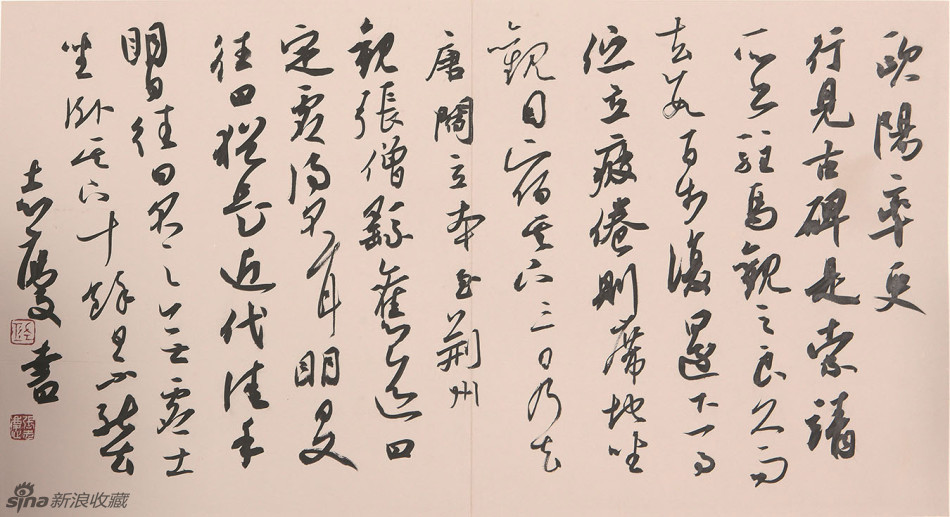 歐陽率更
行見古碑是索靖
所書駐馬觀之良久而
去數百步復還下馬
佇立疲倦則席地坐
觀因宿其下三日乃去
唐閻立本至荊州
觀張僧繇舊迹曰
定虛得名耳明日又
往曰猶是近代佳手
明日往曰名下無虛士
坐臥其下十餘日不能去
志慶書
sina新浪收藏